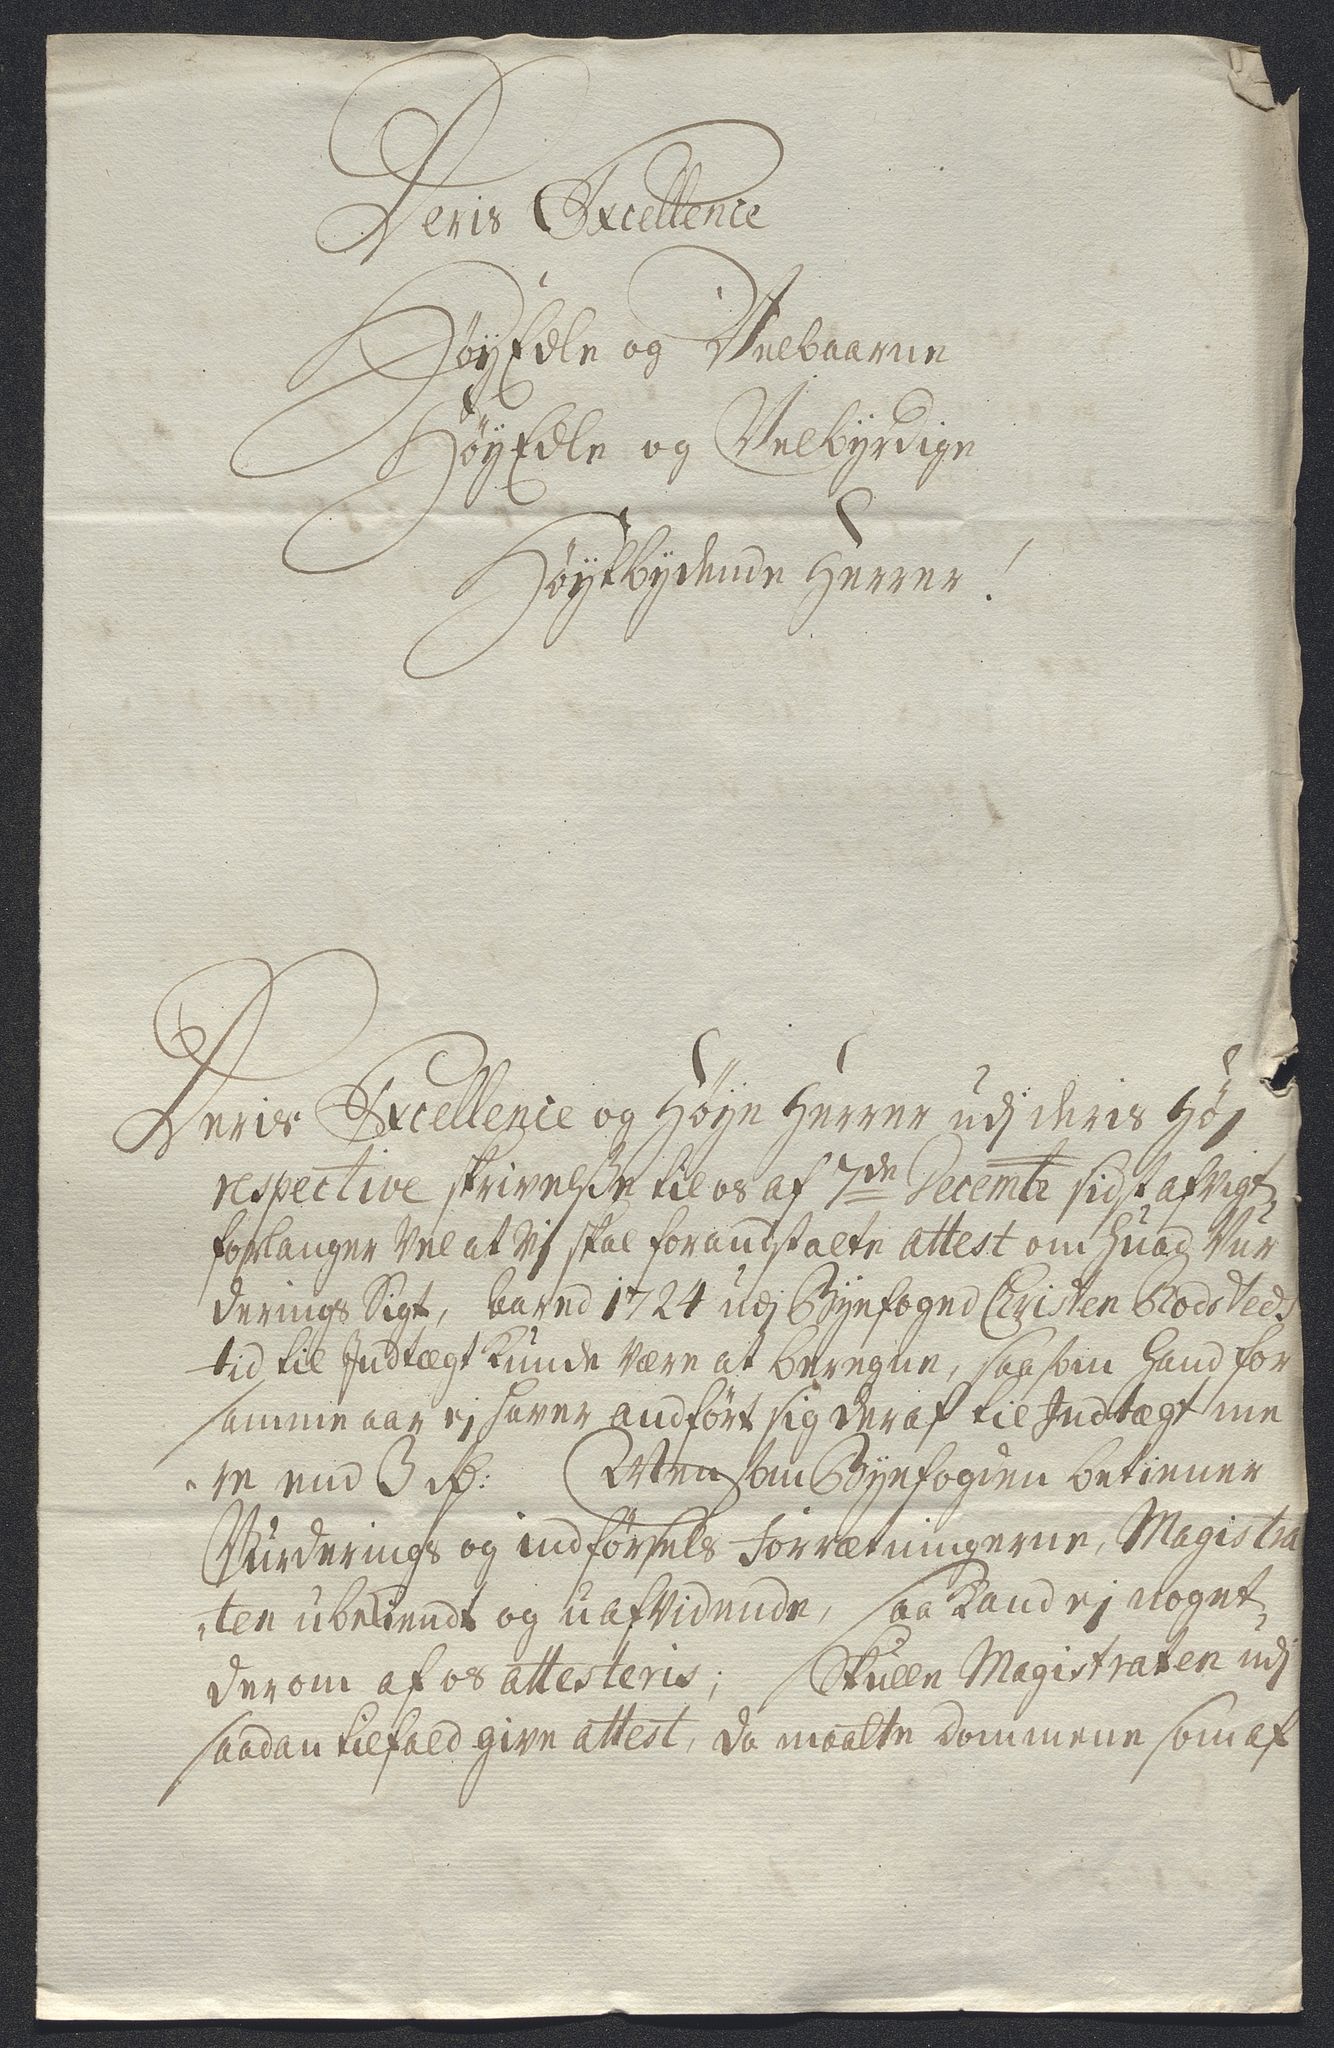 Deris Excellence
HøyEdle og Velbaarne
HøyEdle og Velbyrdige
Høytbydende Herrer!
Deris Excellence og Høye Herrer udj deris Høj
respective skrivelsse til os af 7de Decembr sidst afvigt,
forlanger vel at vj skal forandstalte attest om hvad Vur
derings Sigt, aared 1724 udj Byefoged Christen Blodsteds
tid til Indtægt kunde være at beregne, saasom hand for
samme aar ej haver andført sig deraf til Indtægt me
re end 3 rd: Men som Byefogden betiener
Vurderings og indførsels Forrætningerne, Magistra
ten ubekiendt og uafvidende, saa kand ej noget,
derom af os attesteris; Skulle Magistraten udj
saadan tilfald give attest, da maatte dommene som af